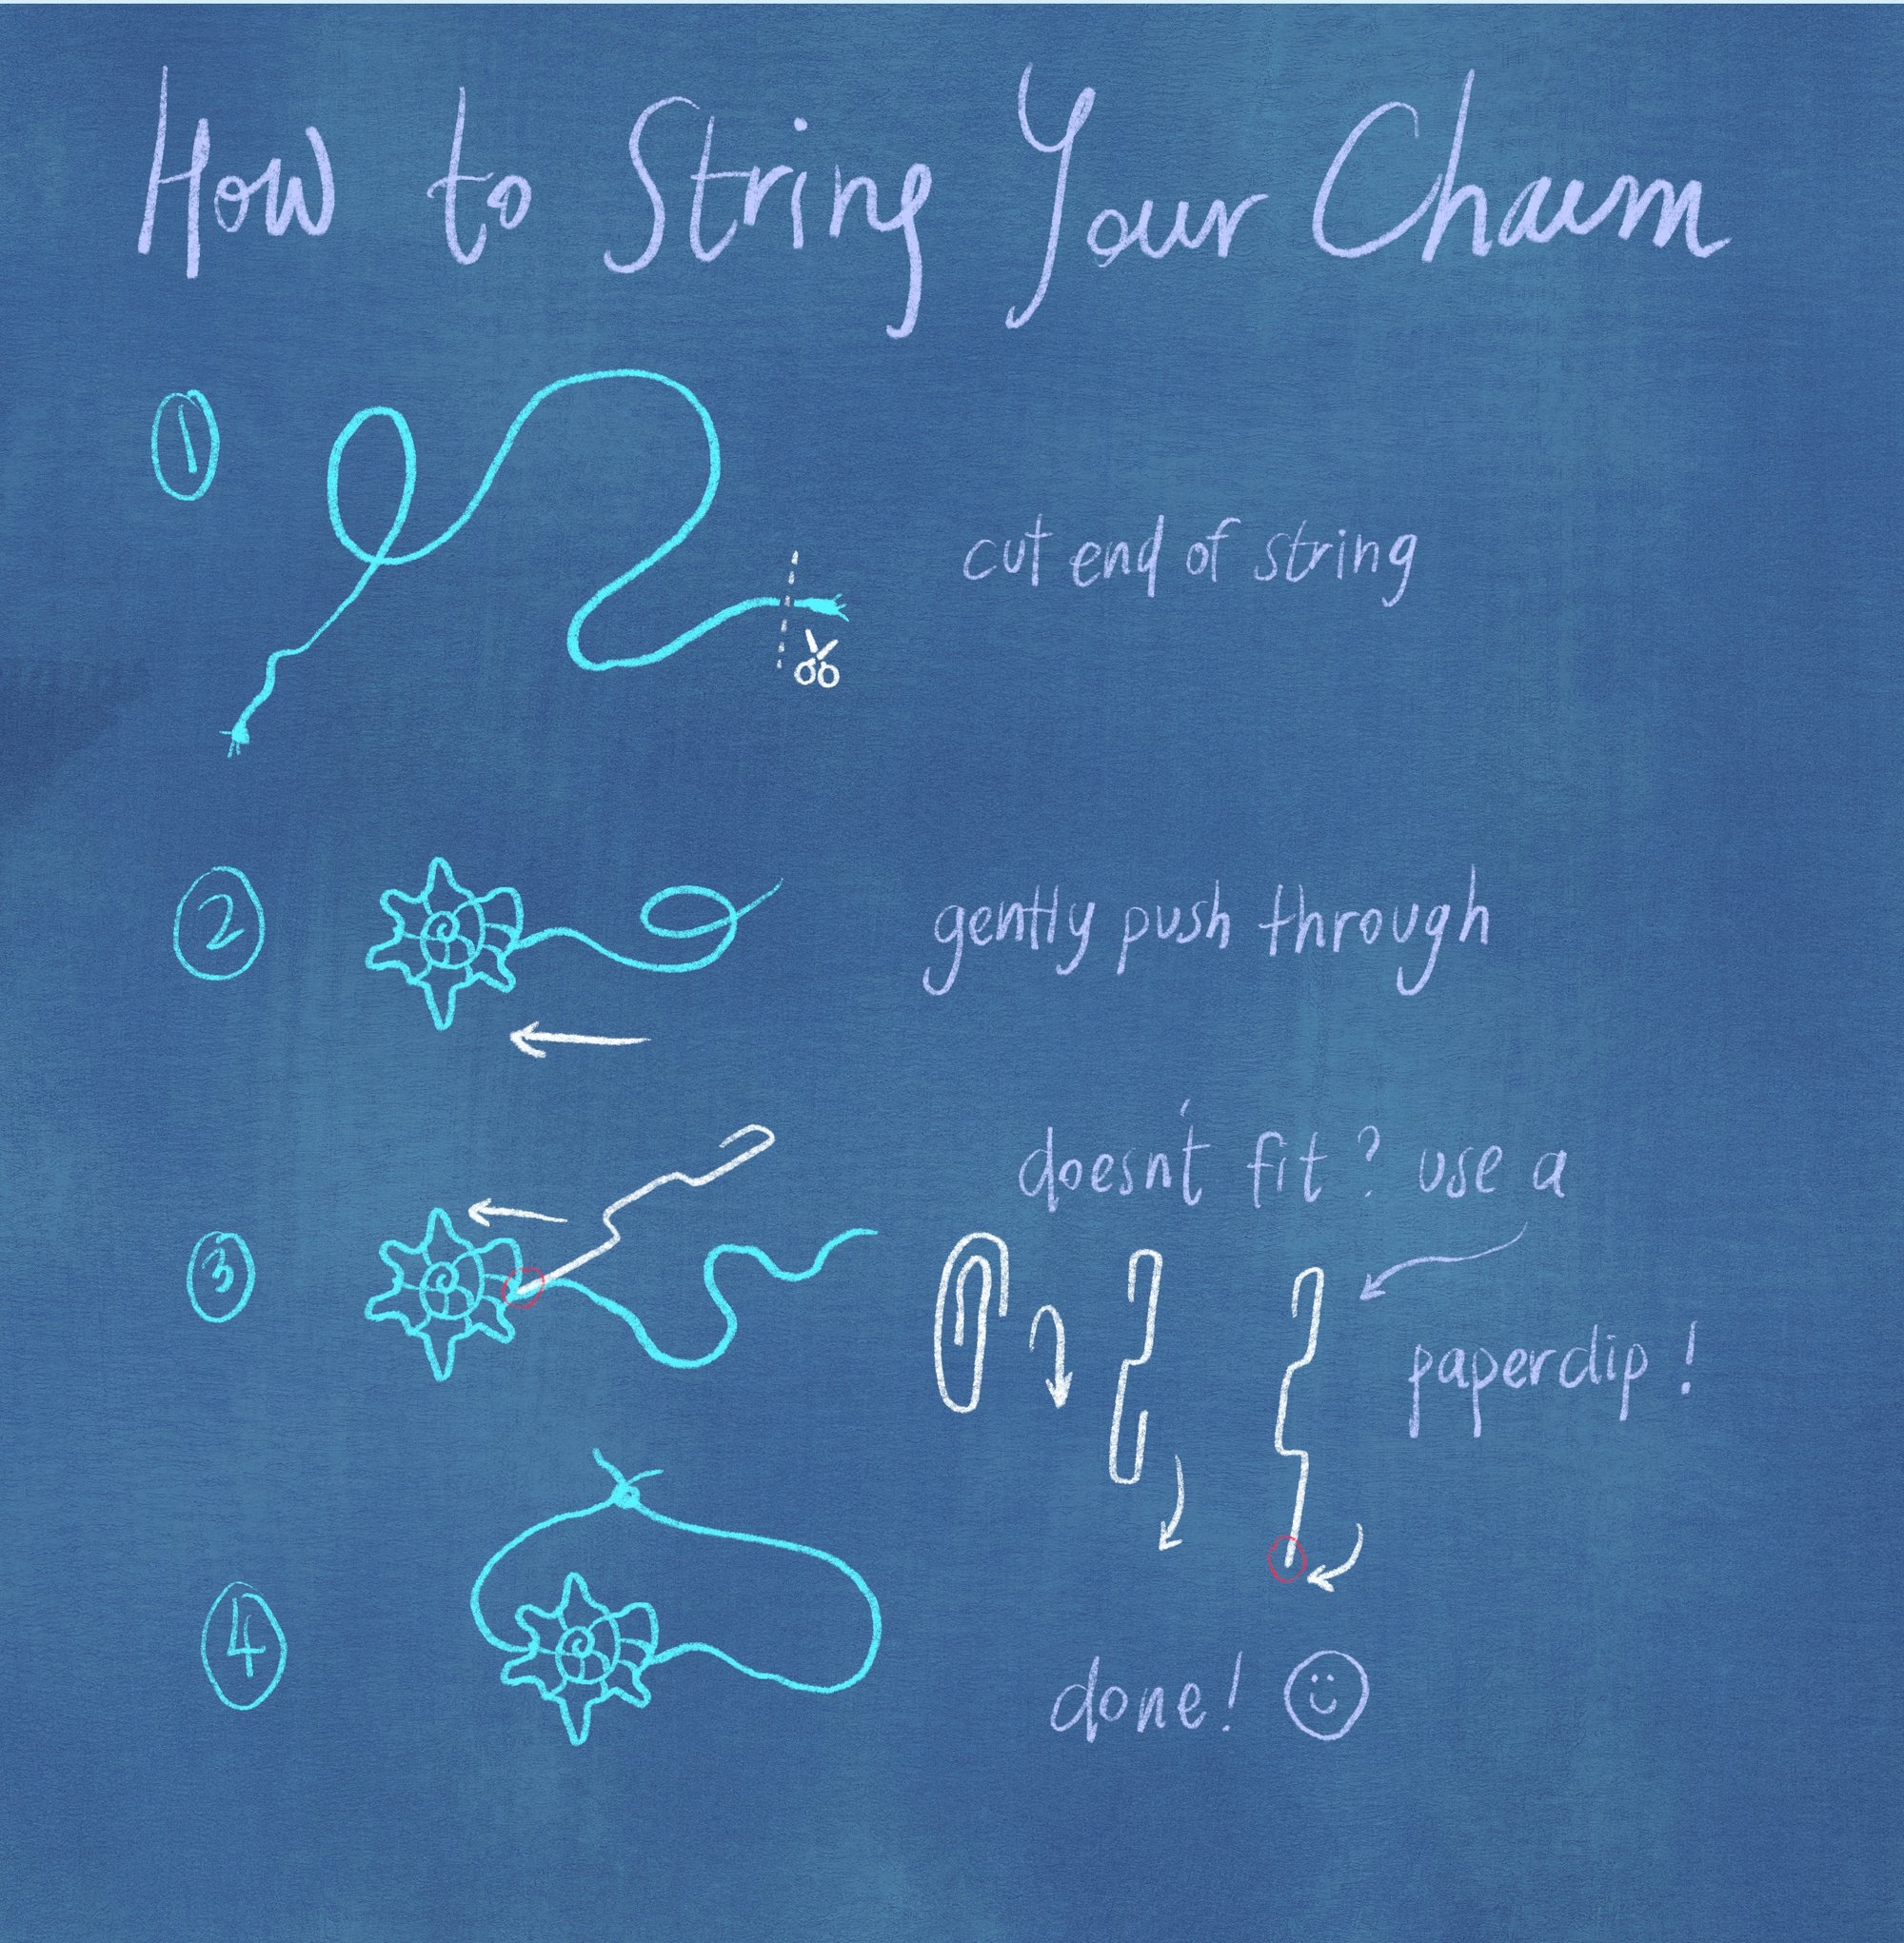 How to String Your Charm
1
cut end of string
2
gently push through
3
doesn't fit? use a
paperclip!
4
done!